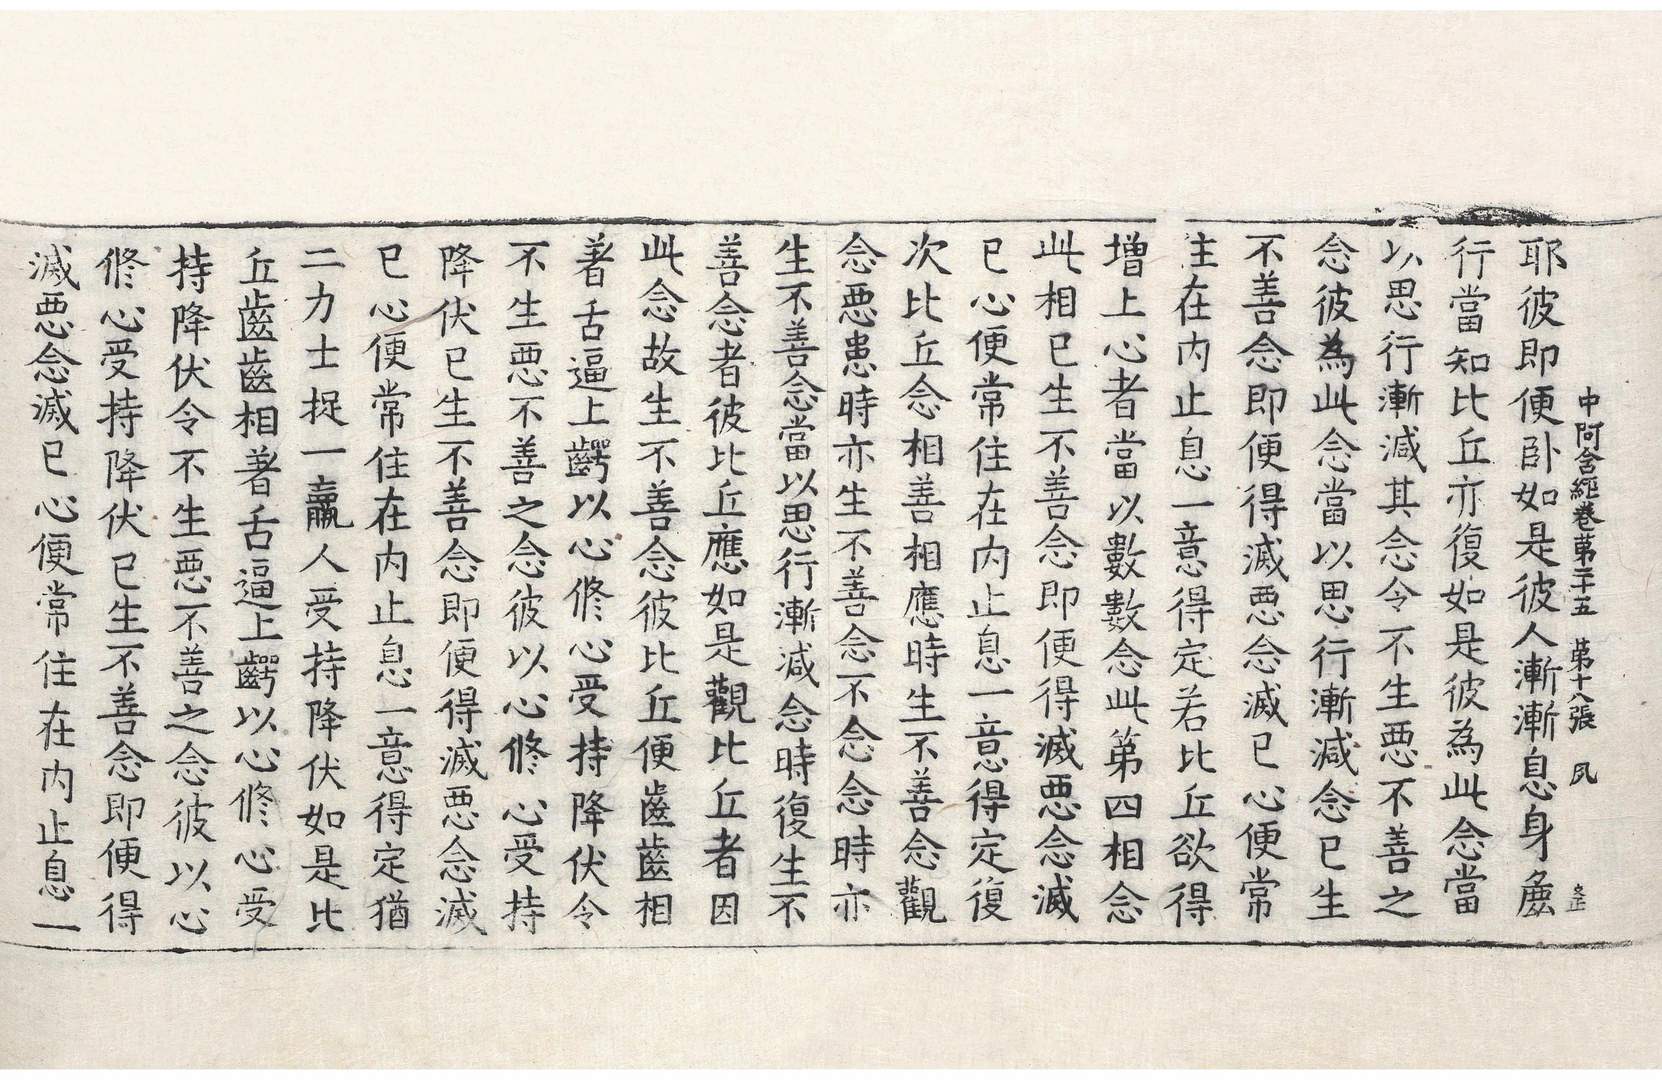 中阿含經卷第二十五 第十八張 夙
耶彼即便卧如是彼人漸漸息身麁
行當知比丘亦復如是彼為此念當
以思行漸減其念令不生惡不善之
念彼為此念當以思行漸減念已生
不善念即便得滅惡念滅已心便常
住在内止息一意得定若比丘欲得
增上心者當以數數念此第四相念
此相已生不善念即便得滅惡念滅
已心便常住在内止息一意得定復
次比丘念相善相應時生不善念觀
念惡患時亦生不善念不念念時亦
生不善念當以思行漸減念時復生不
善念者彼比丘應如是觀比丘者因
此念故生不善念彼比丘便齒齒相
著舌逼上齶以心修心受持降伏令
不生惡不善之念彼以心修心受持
降伏已生不善念即便得滅惡念滅
已心便常住在内止息一意得定猶
二力士捉一羸人受持降伏如是比
丘齒齒相著舌逼上齶以心修心受
持降伏令不生惡不善之念彼以心
修心受持降伏已生不善念即便得
滅惡念滅已心便常住在内止息一